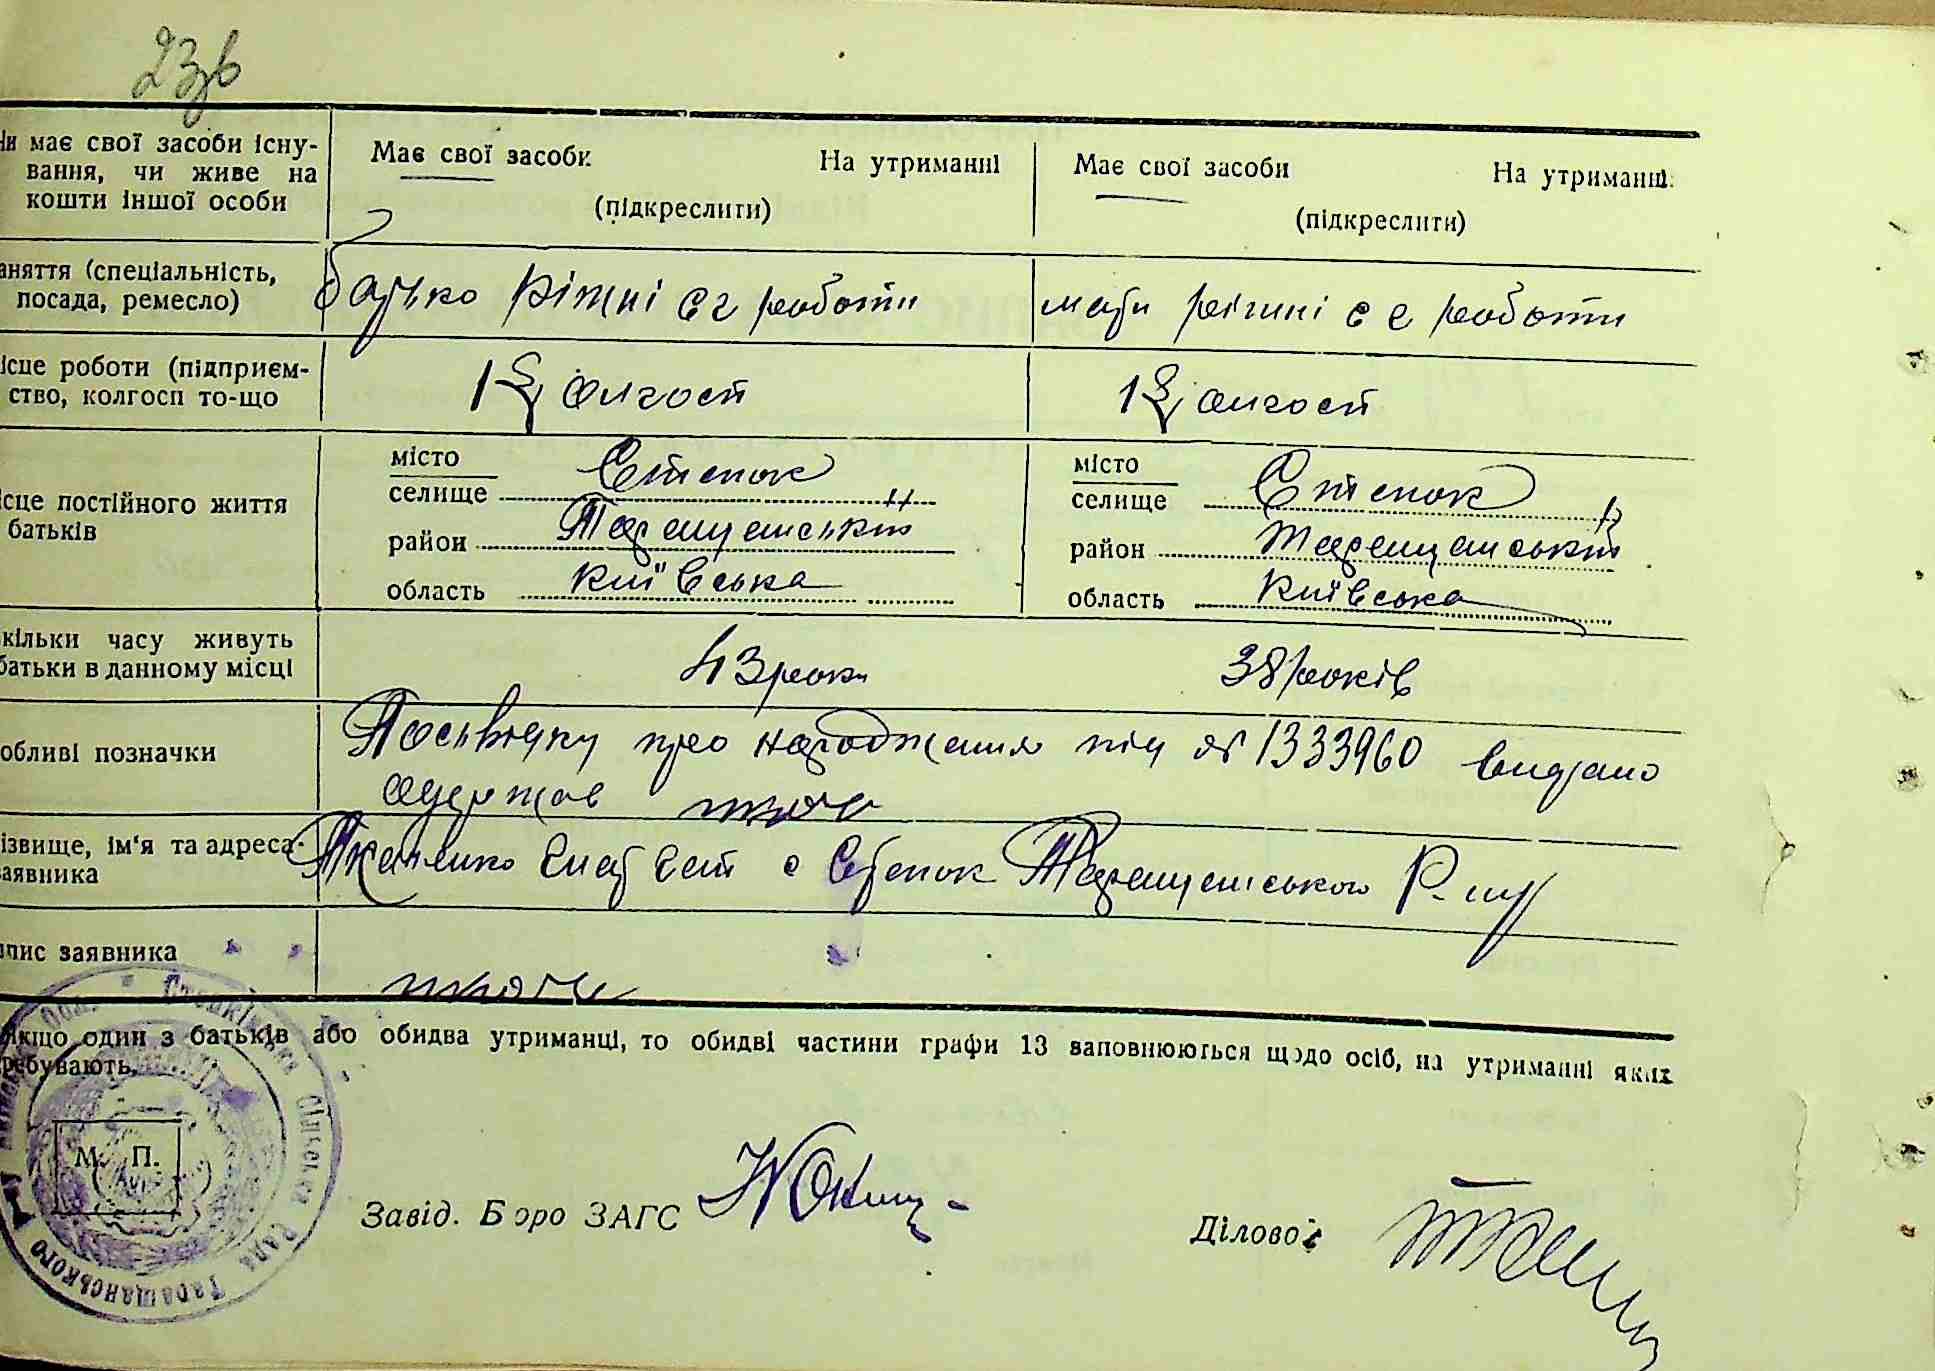 23 зв
Чи має свої засоби існу-
вання, чи живе на
кошти іншої особи
Має свої засоби На утриманні
(підкреслити)
Має свої засоби На утриманні
(підкреслити)
аняття (спеціальність,
посада, ремесло)
батько ріжні с г роботи
мати ріжні с г роботи
ісце роботи (підприєм-
ство, колгосп то-що
місто
селище Степок
район Таращанський
область Київська
місто
селище Степок
район Таращанський
область Київська
ісце постійного життя
батьків
кільки часу живуть
батьки в данному місці
43 роки
38 років
обливі позначки
Посьвідку про народження під № 1333960 видано
одержав
ізвище, ім'я та адреса
заявника
Ткаченко с Степок Таращанського Р-ну
пис заявника
Якщо один з батьків або обидва утриманці, то обидві частини графи 13 заповнюються щодо осіб, на утриманні яких
ребувають.
М. П.
Стецківська Сільська Рада Таращанського
Завід. Бюро ЗАГС
Діловод